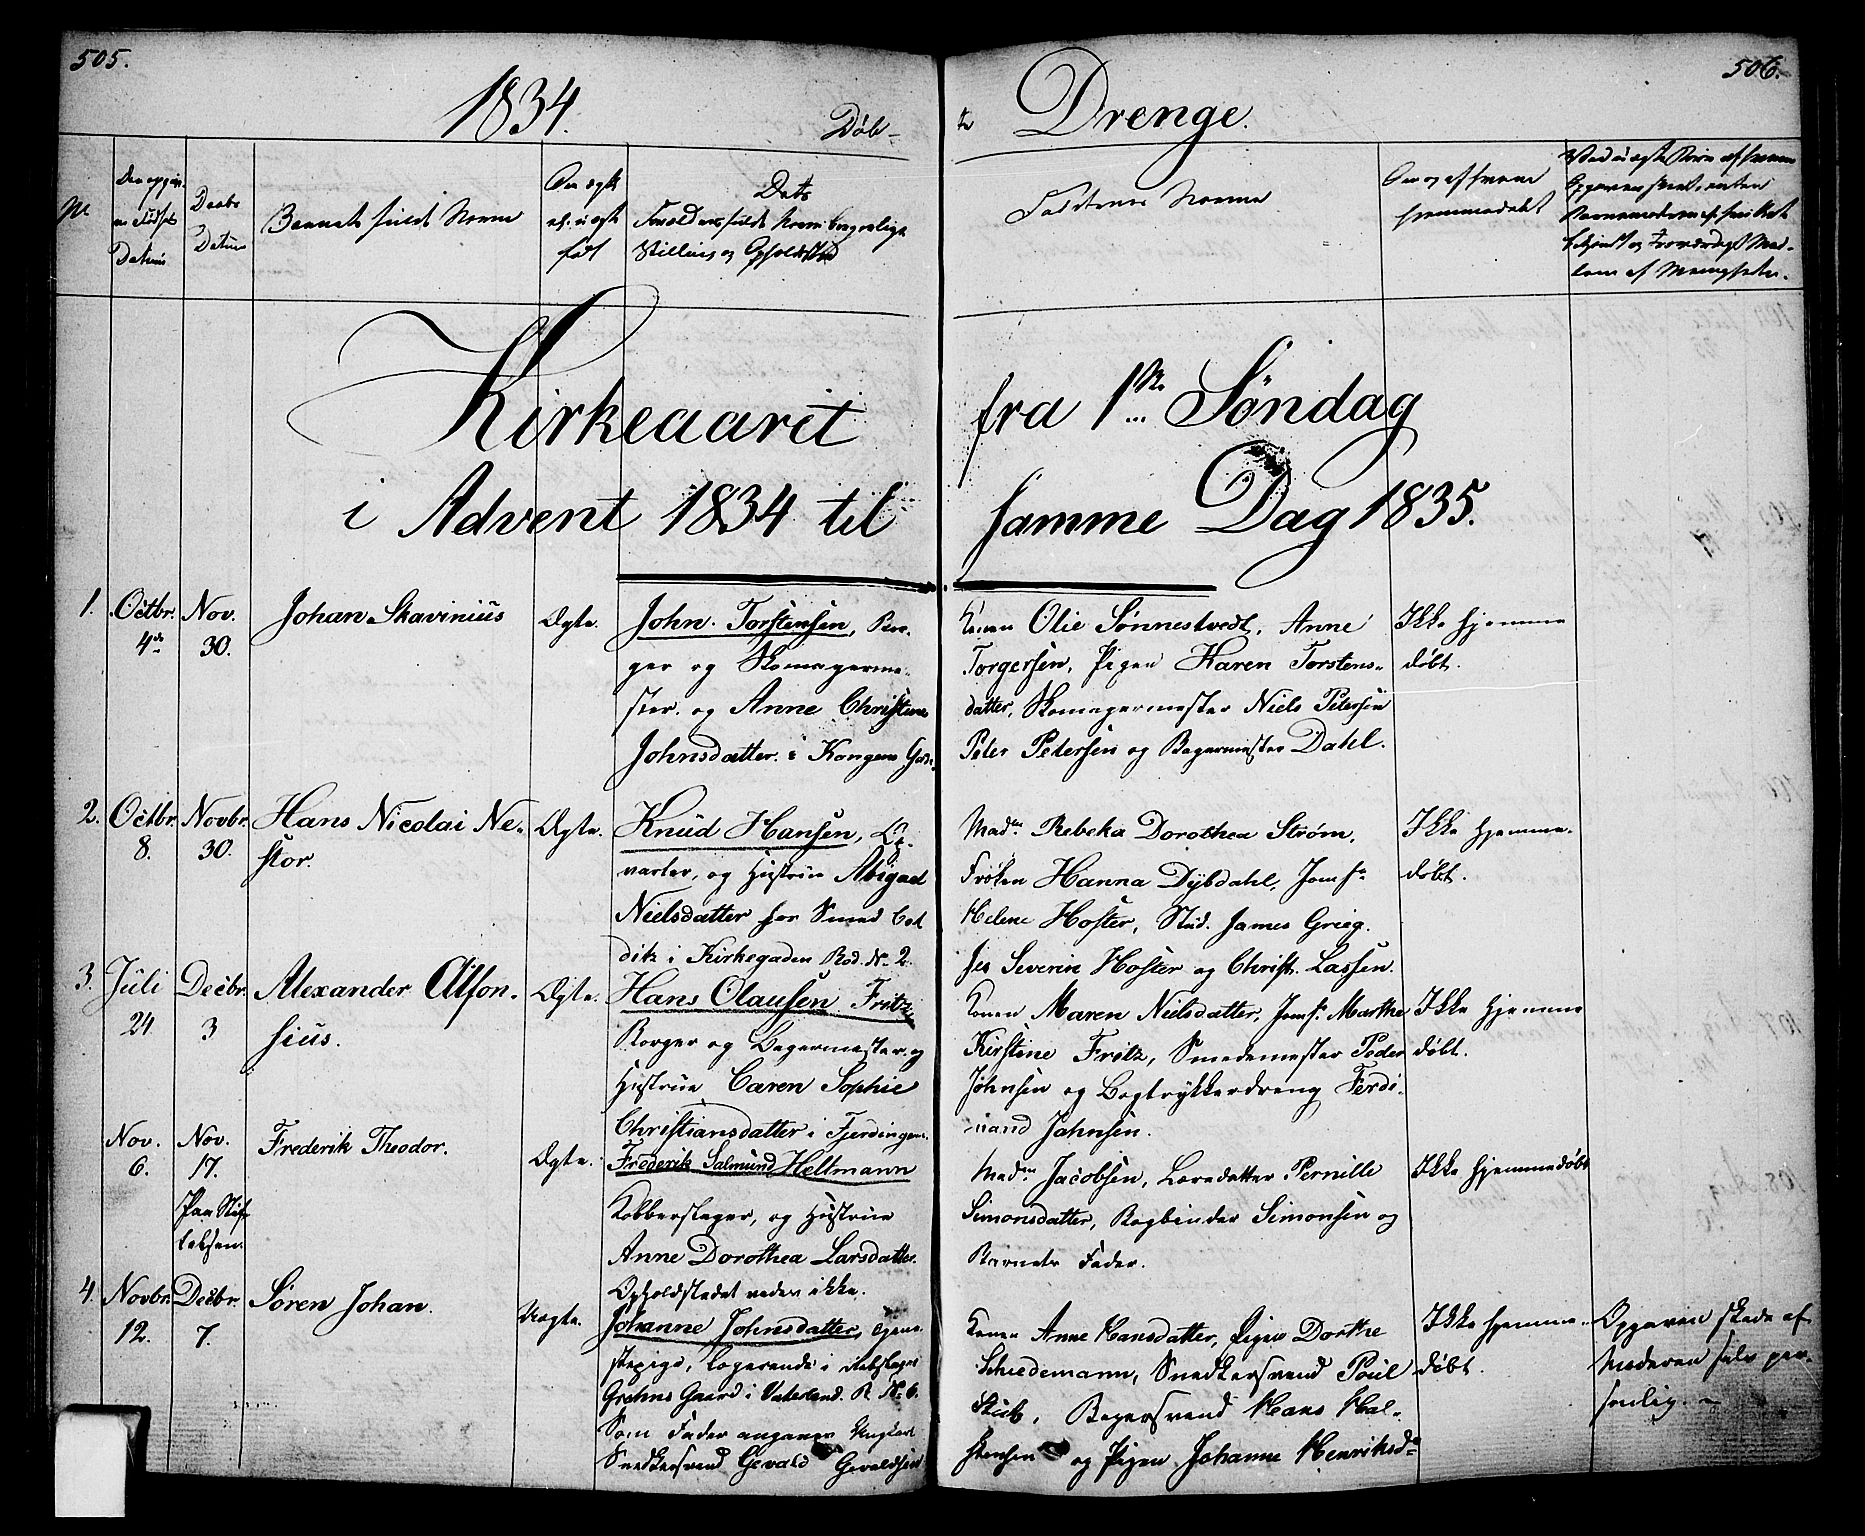 505.
1834.
Døb-
te Drenge.
506.
No
Datum
Daabs
Datum
Barnets fulde Navn
Om ægte
el. uægte
født
Dets
Forældres fulde Navn borgerlige
Stilling og Opholdssted
Faddernes Navne
Kirkeaaret fra 1ste Søndag
i Advent 1834 til samme Dag 1835.
1. Octbr. Nov. Johan Skavinius Ægte.
4de 30.
John Torstensen, Bor-
ger og Skomagerme-
ster og Anne Christine
Johnsdatter. i Kongens Gade
Konen Olie Sønnestvedt, Anne
Torgersen, Pigen Karen Torstens-
datter, Skomagermester Niels Petersen
Peter Petersen og Bagermester Dahl.
Ikke hjemme
døbt.
2. Octbr. Novbr. Hans Nicolai Ne- Ægte.
8. 30. stor.
Knud Hansen, Op-
varter, og Hustrue Abigael
Nielsdatter hos Smed
i Kirkegaden Rod. No 2.
Madm. Rebeka Dorothea Strøm,
Frøken Hanna Dybdahl, Jomfr.
Helene Hoster, Stud. James Grieg.
Jes Severin Hoster og Christ. Lassen.
Ikke hjemme-
døbt.
3. Juli Decbr. Alexander Alfon- Ægte.
24. 3 sius.
Hans Olausen Fritz
Borger og Bagermester og
Hustrue Caren Sophie
Christiansdatter i Fjerdingen.
Konen Maren Nielsdatter, Jomf. Marthe
Kirstine Fritz, Smedemester Peder
Johnsen og Bogtrykkerdreng Ferdi-
nand Johnsen.
Ikke hjemme
døbt.
Nov. Nov. Frederik Theodor. Ægte.
6. 17.
Paa Stif-
telsen.
Frederik Salmund Heltmann
Kobberslager, og Hustrue
Anne Dorothea Larsdatter.
Opholdstedet vides ikke.
Madm. Jacobsen, Læredatter Pernille
Simonsdatter, Bogbinder Simonsen og
Barnets Fader.
Ikke hjemmedøbt
4. Novbr. Decbr. Søren Johan. Uægte.
12. 7.
Johanne Johnsdatter, tjene-
stepige, logerende i Rebslager
Grøhns Gaard i Vaterland. R. No 6.
Som Fader angaves Ungkarl
Snedkersvend Gevald Gevaldsen
Konen Anne Hansdatter, Pigen Dorthe
Schiedemann, Snedkersvend Poul
Skib, Bagersvend Hans Hal-
stensen og Pigen Johanne Henriksdr
Ikke hjemme-
døbt.
Opgaven skede af
Moderen selv per-
sonlig.